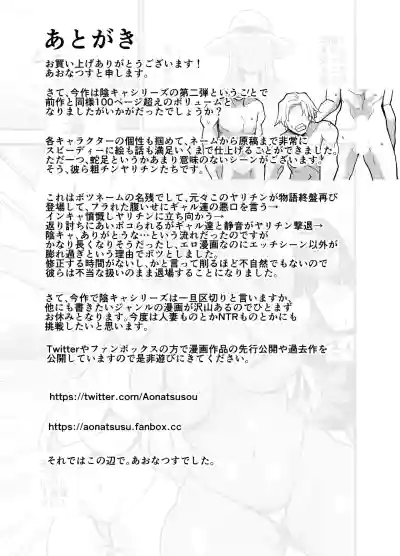 あとがき
お買い上げありがとうございます！
あおなつすと申します。
さて、今作は陰キャシリーズの第二弾ということで
前作と同様100ページ超えのボリュームと
なりましたがいかがだったでしょうか？
各キャラクターの個性も掴めて、ネームから原稿まで非常に
スピーディーに絵も話も満足いくまで仕上げることができました。
ただ一つ、蛇足というかあまり意味のないシーンがございます！
そう、彼ら粗チンヤリチンたちです。
これはボツネームの名残でして、元々このヤリチンが物語終盤再び
登場して、フラれた腹いせにギャル達の悪口を言う→
インキャ憤慨しヤリチンに立ち向かう→
返り討ちにあいボコられるがギャル達と静音がヤリチン撃退→
陰キャ、ありがとうな…という流れだったのですが
かなり長くなりそうだったし、エロ漫画なのにエッチシーン以外が
膨れ過ぎという理由でボツとしました。
修正する時間がないし、かと言って削るほど不自然でもないので
彼らは不当な扱いのまま退場することになりました。
さて、今作で陰キャシリーズは一旦区切りと言いますか、
他にも書きたいジャンルの漫画が沢山あるのでひとまず
お休みとなります。今度は人妻ものとかNTRものとかにも
挑戦したいと思います。
Twitterやファンボックスの方で漫画作品の先行公開や過去作を
公開していますので是非遊びにきてください。
https://twitter.com/Aonatsusou
https://aonatsusu.fanbox.cc
それではこの辺で。あおなつすでした。